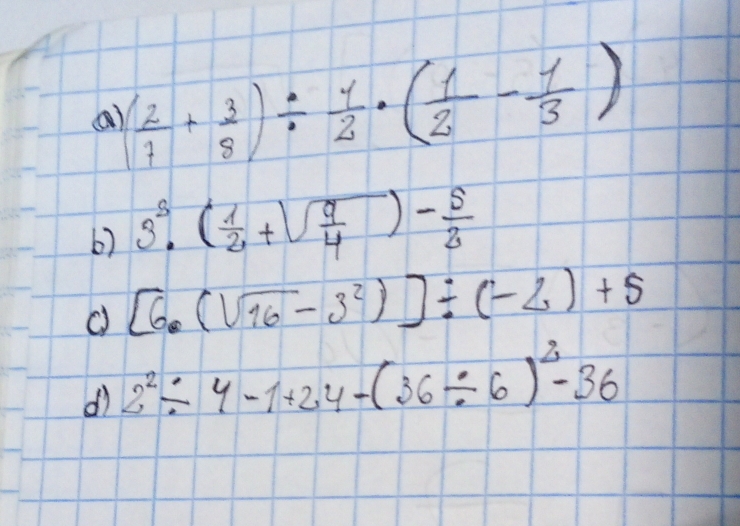 a) (2/7 + 3/8) ÷ 1/2 · (1/2 - 1/3)
b) 3³ · (1/2 + √9/4) - 5/2
c) [6 · (√16 - 3²)] ÷ (-2) + 5
d) 2² ÷ 4 - 1 + 24 - (36 ÷ 6)² - 36